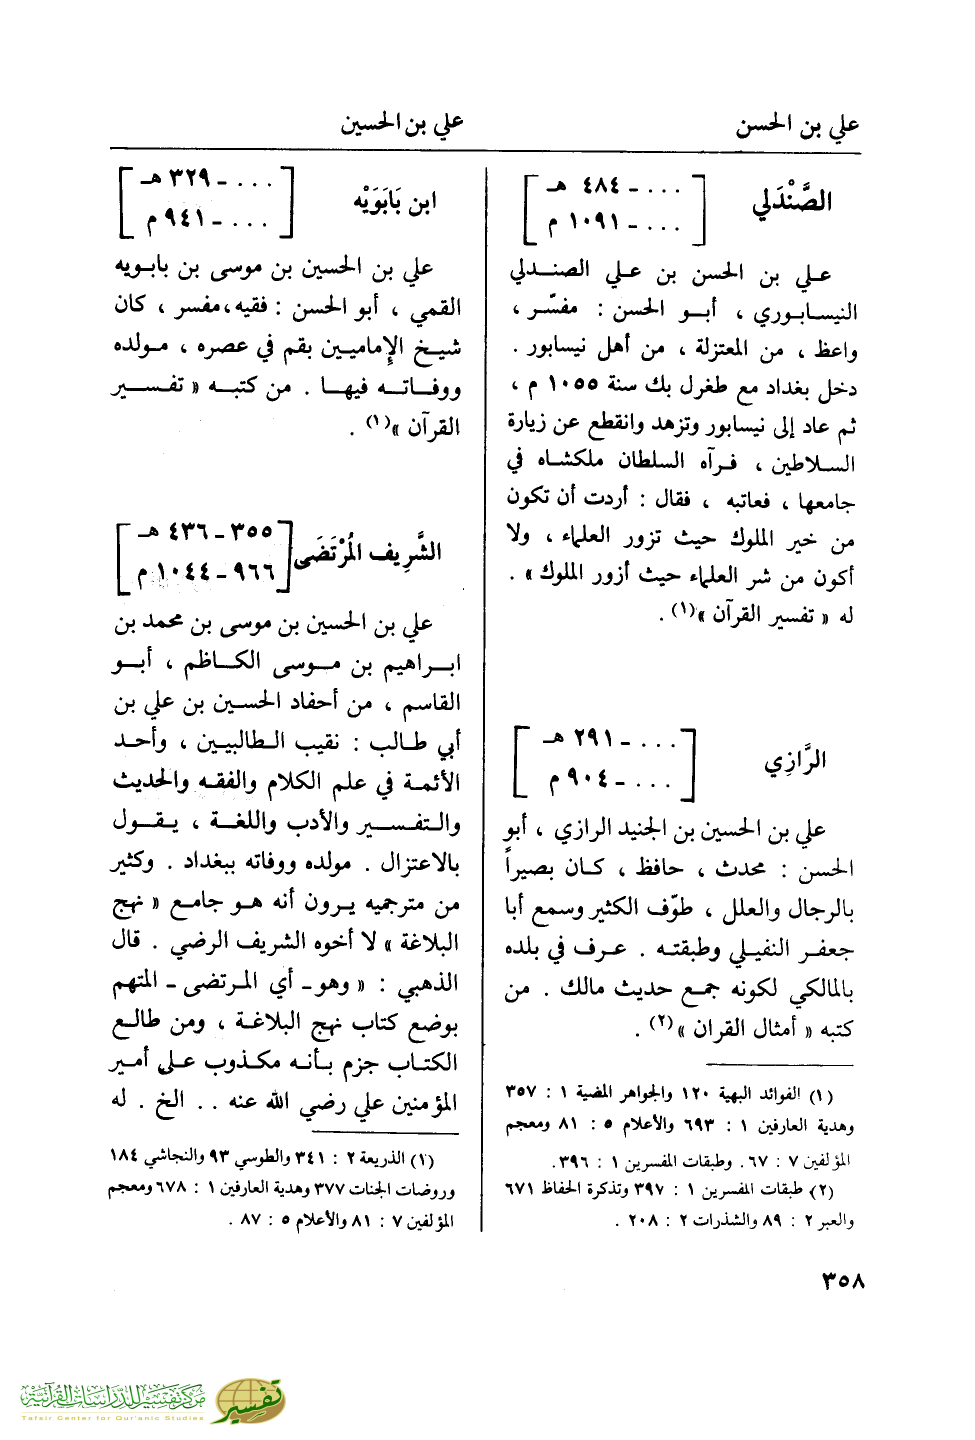 علي بن الحسن
علي بن الحسين
الصَّنْدَلي
... - ٤٨٤ هـ
... - ١٠٩١ م
علي بن الحسن بن علي الصندلي
النيسابوري ، أبو الحسن : مفسّر ،
واعظ ، من المعتزلة ، من أهل نيسابور .
دخل بغداد مع طغرل بك سنة ١٠٥٥ م ،
ثم عاد إلى نيسابور وتزهد وانقطع عن زيارة
السلاطين ، فرآه السلطان ملكشاه في
جامعها ، فعاتبه ، فقال : أردت أن تكون
من خير الملوك حيث تزور العلماء ، ولا
أكون من شر العلماء حيث أزور الملوك » .
له « تفسير القرآن »(١) .
الرَّازِي
... - ٢٩١ هـ
... - ٩٠٤ م
علي بن الحسين بن الجنيد الرازي ، أبو
الحسن : محدث ، حافظ ، كان بصيراً
بالرجال والعلل ، طوّف الكثير وسمع أبا
جعفر النفيلي وطبقته . عرف في بلده
بالمالكي لكونه جمع حديث مالك . من
كتبه « أمثال القران »(٢) .
(١) الفوائد البهية ١٢٠ والجواهر المضية ١ : ٣٥٧
وهدية العارفين ١ : ٦٩٣ والأعلام ٥ : ٨١ ومعجم
المؤلفين ٧ : ٦٧. وطبقات المفسرين ١ : ٣٩٦.
(٢) طبقات المفسرين ١ : ٣٩٧ وتذكرة الحفاظ ٦٧١
والعبر ٢ : ٨٩ والشذرات ٢ : ٢٠٨ .
ابن بَابَوَيْه
... - ٣٢٩ هـ
... - ٩٤١ م
علي بن الحسين بن موسى بن بابويه
القمي ، أبو الحسن : فقيه، مفسر ، كان
شيخ الإماميين بقم في عصره ، مولده
ووفاته فيها . من كتبه « تفسير
القرآن »(١) .
الشَّرِيف المُرْتَضَى
٣٥٥ - ٤٣٦ هـ
٩٦٦ - ١٠٤٤ م
علي بن الحسين بن موسى بن محمد بن
ابراهيم بن موسى الكاظم ، أبو
القاسم ، من أحفاد الحسين بن علي بن
أبي طالب : نقيب الطالبيين ، وأحد
الأئمة في علم الكلام والفقه والحديث
والتفسير والأدب واللغة ، يقول
بالاعتزال . مولده ووفاته ببغداد . وكثير
من مترجميه يرون أنه هو جامع « نهج
البلاغة » لا أخوه الشريف الرضي . قال
الذهبي : « وهو - أي المرتضى - المتهم
بوضع كتاب نهج البلاغة ، ومن طالع
الكتاب جزم بأنه مكذوب على أمير
المؤمنين علي رضي الله عنه .. الخ . له
(١) الذريعة ٢ : ٣٤١ والطوسي ٩٣ والنجاشي ١٨٤
وروضات الجنات ٣٧٧ وهدية العارفين ١ : ٦٧٨ ومعجم
المؤلفين ٧ : ٨١ والأعلام ٥ : ٨٧ .
٣٥٨
مركز تفسير للدراسات القرآنية
Tafsir Center for Qur'anic Studies
تفسير